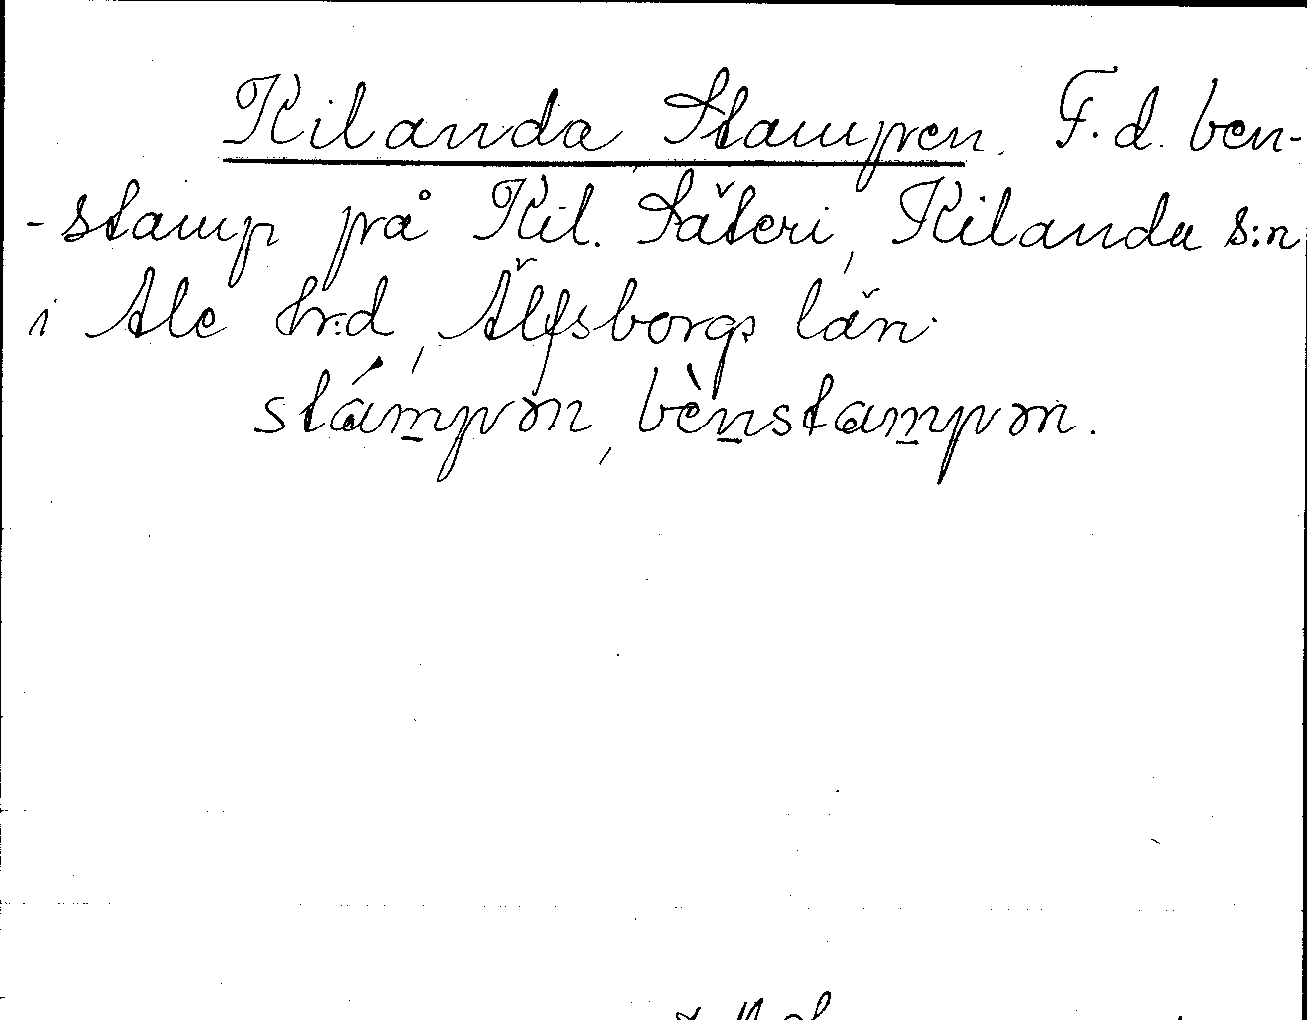 Kilanda Stampen. F.d. ben-
-stamp på Kil. Säteri, Kilanda s:n
i Ale hr:d, Älfsborgs län.
stámpən, bènstampən.